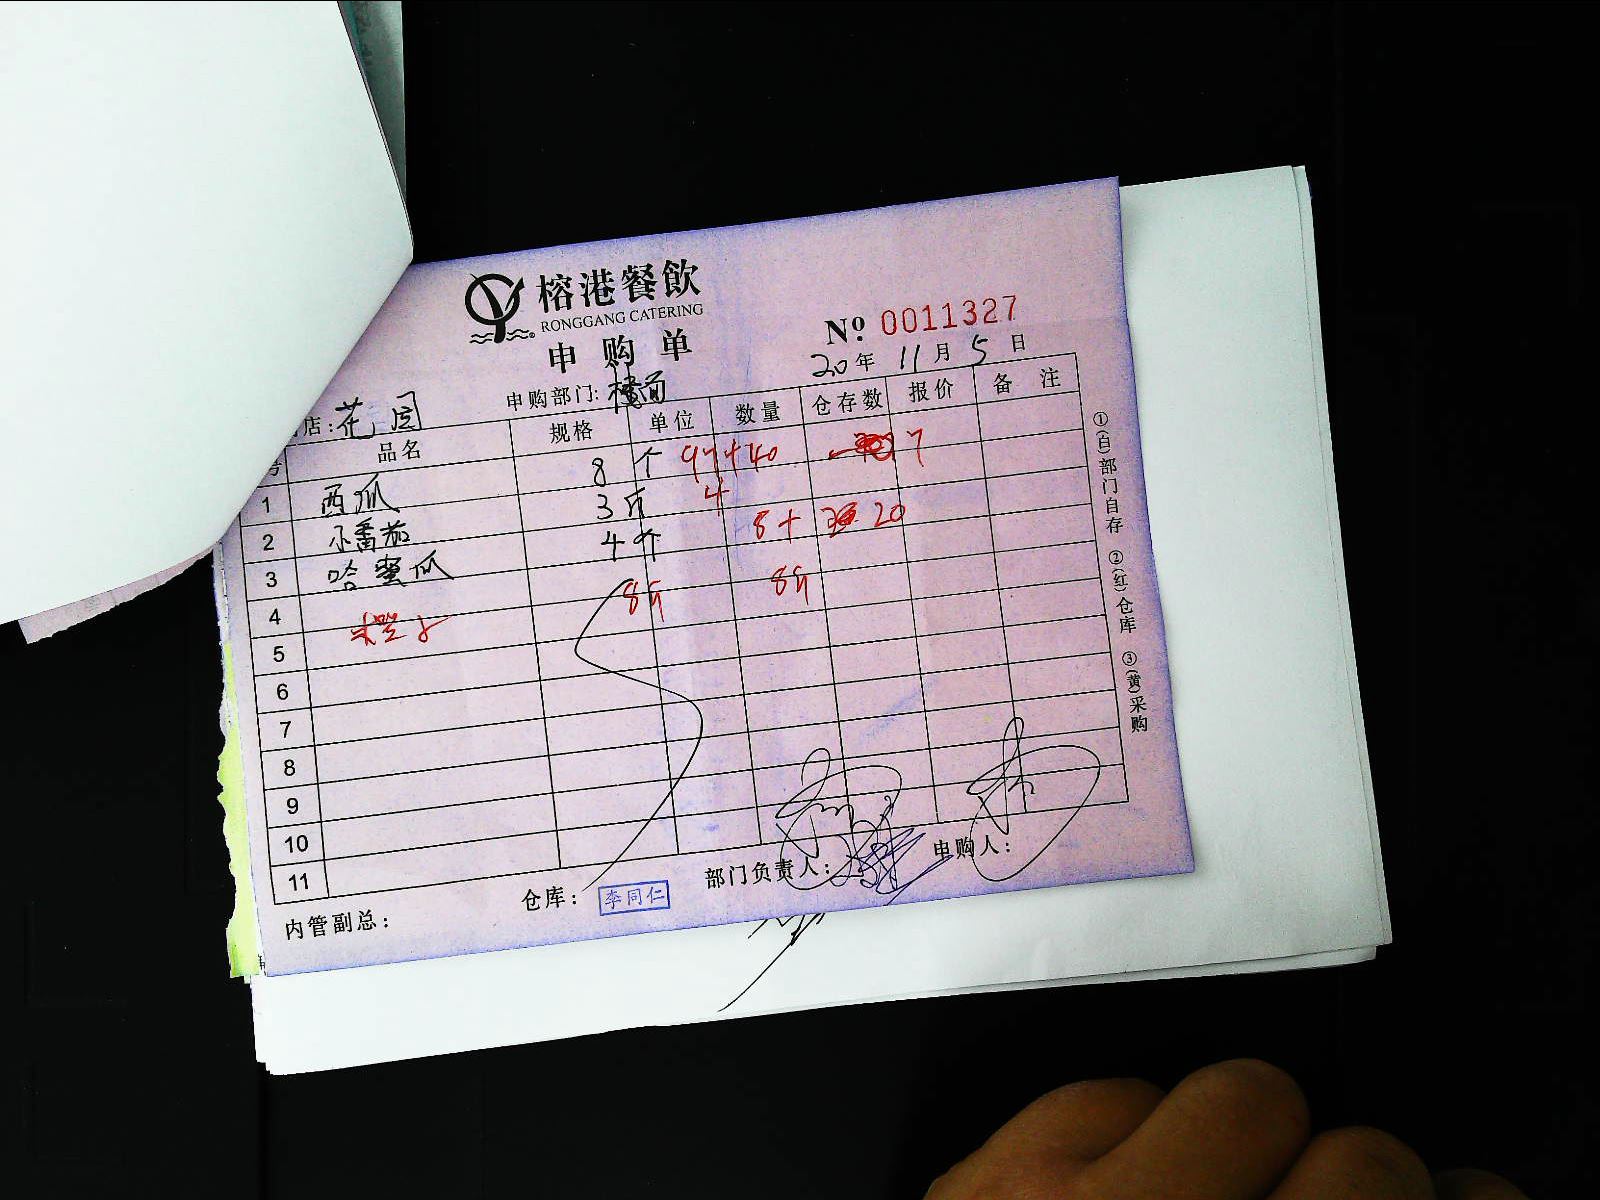 榕港餐飲
RONGGANG CATERING
申购单
Nº 0011327
20年 11月 5日
店: 花园 申购部门: 楼面
号 品名 规格 单位 数量 仓存数 报价 备注
1 西瓜 8 个
2 小番茄 3 斤 4
3 哈蜜瓜 4 个 8+ 20
4 8斤 8斤
5
6
7
8
9
10
11
内管副总: 仓库: 李同仁 部门负责人: 申购人:
①(白)部门自存 ②(红)仓库 ③(黄)采购